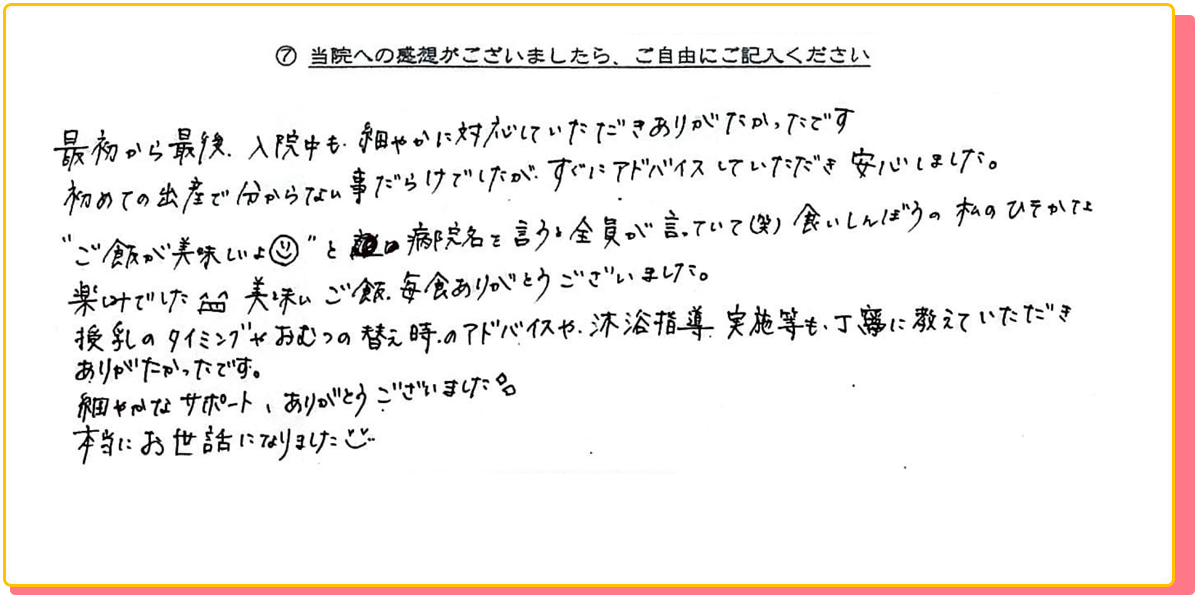 ⑦ 当院への感想がございましたら、ご自由にご記入ください
最初から最後、入院中も、細やかに対応していただきありがたかったです
初めての出産で分からない事だらけでしたが、すぐにアドバイスしていただき 安心しました。
"ご飯が美味しいよ☺"と 病院名を言うと全員が言っていて(笑) 食いしんぼうの私のひそかな
楽しみでした 美味しいご飯、毎食ありがとうございました。
授乳のタイミングやおむつの替え時のアドバイスや、沐浴指導、実施等も、丁寧に教えていただき
ありがたかったです。
細やかなサポート、ありがとうございました
本当にお世話になりました